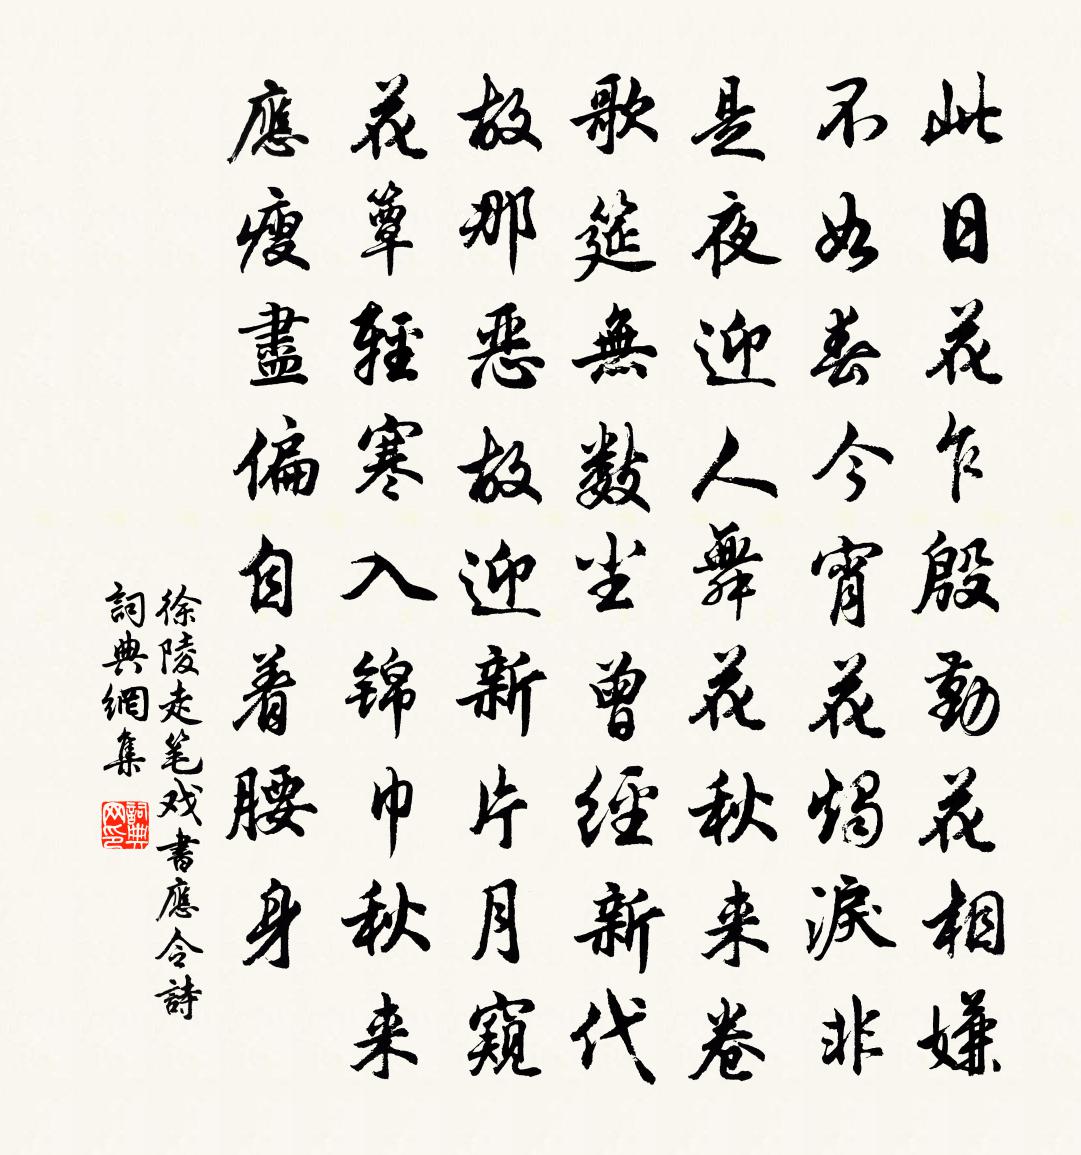 此日花乍殷勤花相嫌
不如春今宵花燭淚非
是夜迎人舞花秋来卷
歌筵無數坐曾經新代
故那惡故迎新片月窺
花簟輕寒入锦巾秋来
應瘦盡偏自着腰身
徐陵走笔戏書應令詩
詞典網集
詞典网印